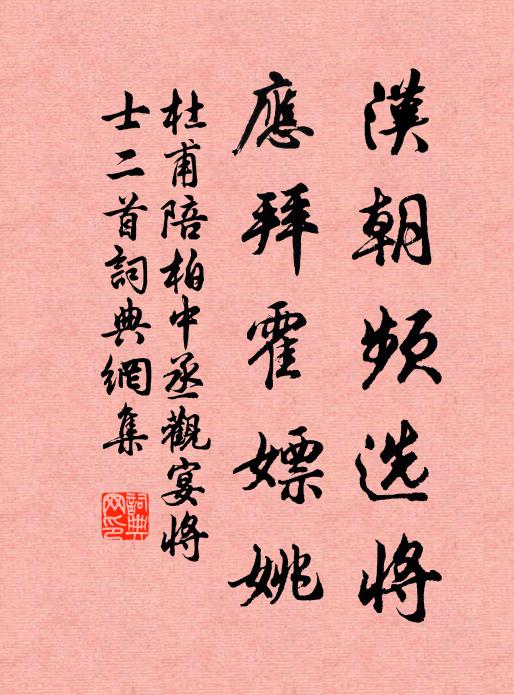 漢朝頻选將
應拜霍嫖姚
杜甫陪柏中丞觀宴將
士二首詞典網集
詞典网印